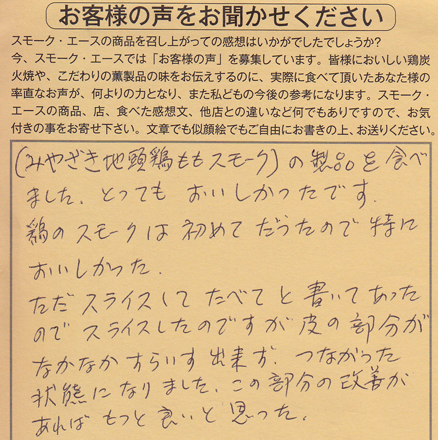 お客様の声をお聞かせください
スモーク・エースの商品を召し上がっての感想はいかがでしたでしょうか?
今、スモーク・エースでは「お客様の声」を募集しています。皆様においしい鶏炭
火焼や、こだわりの薫製品の味をお伝えするのに、実際に食べて頂いたあなた様の
率直なお声が、何よりの力となり、また私どもの今後の参考になります。スモーク・
エースの商品、店、食べた感想文、他店との違いなど何でもありですので、お気
付きの事をお寄せ下さい。文章でも似顔絵でもご自由にお書きの上、お送りください。
(みやざき地頭鶏ももスモーク)の製品を食べ
ました。とっても おいしかったです.
鶏のスモークは初めてだったので特に
おいしかった.
ただスライスしてたべてと書いてあった
のでスライスしたのですが皮の部分が
なかなかすらいす出来ず. つながった
状態になりました、この部分の改善が
あれば もっと良いと思った.